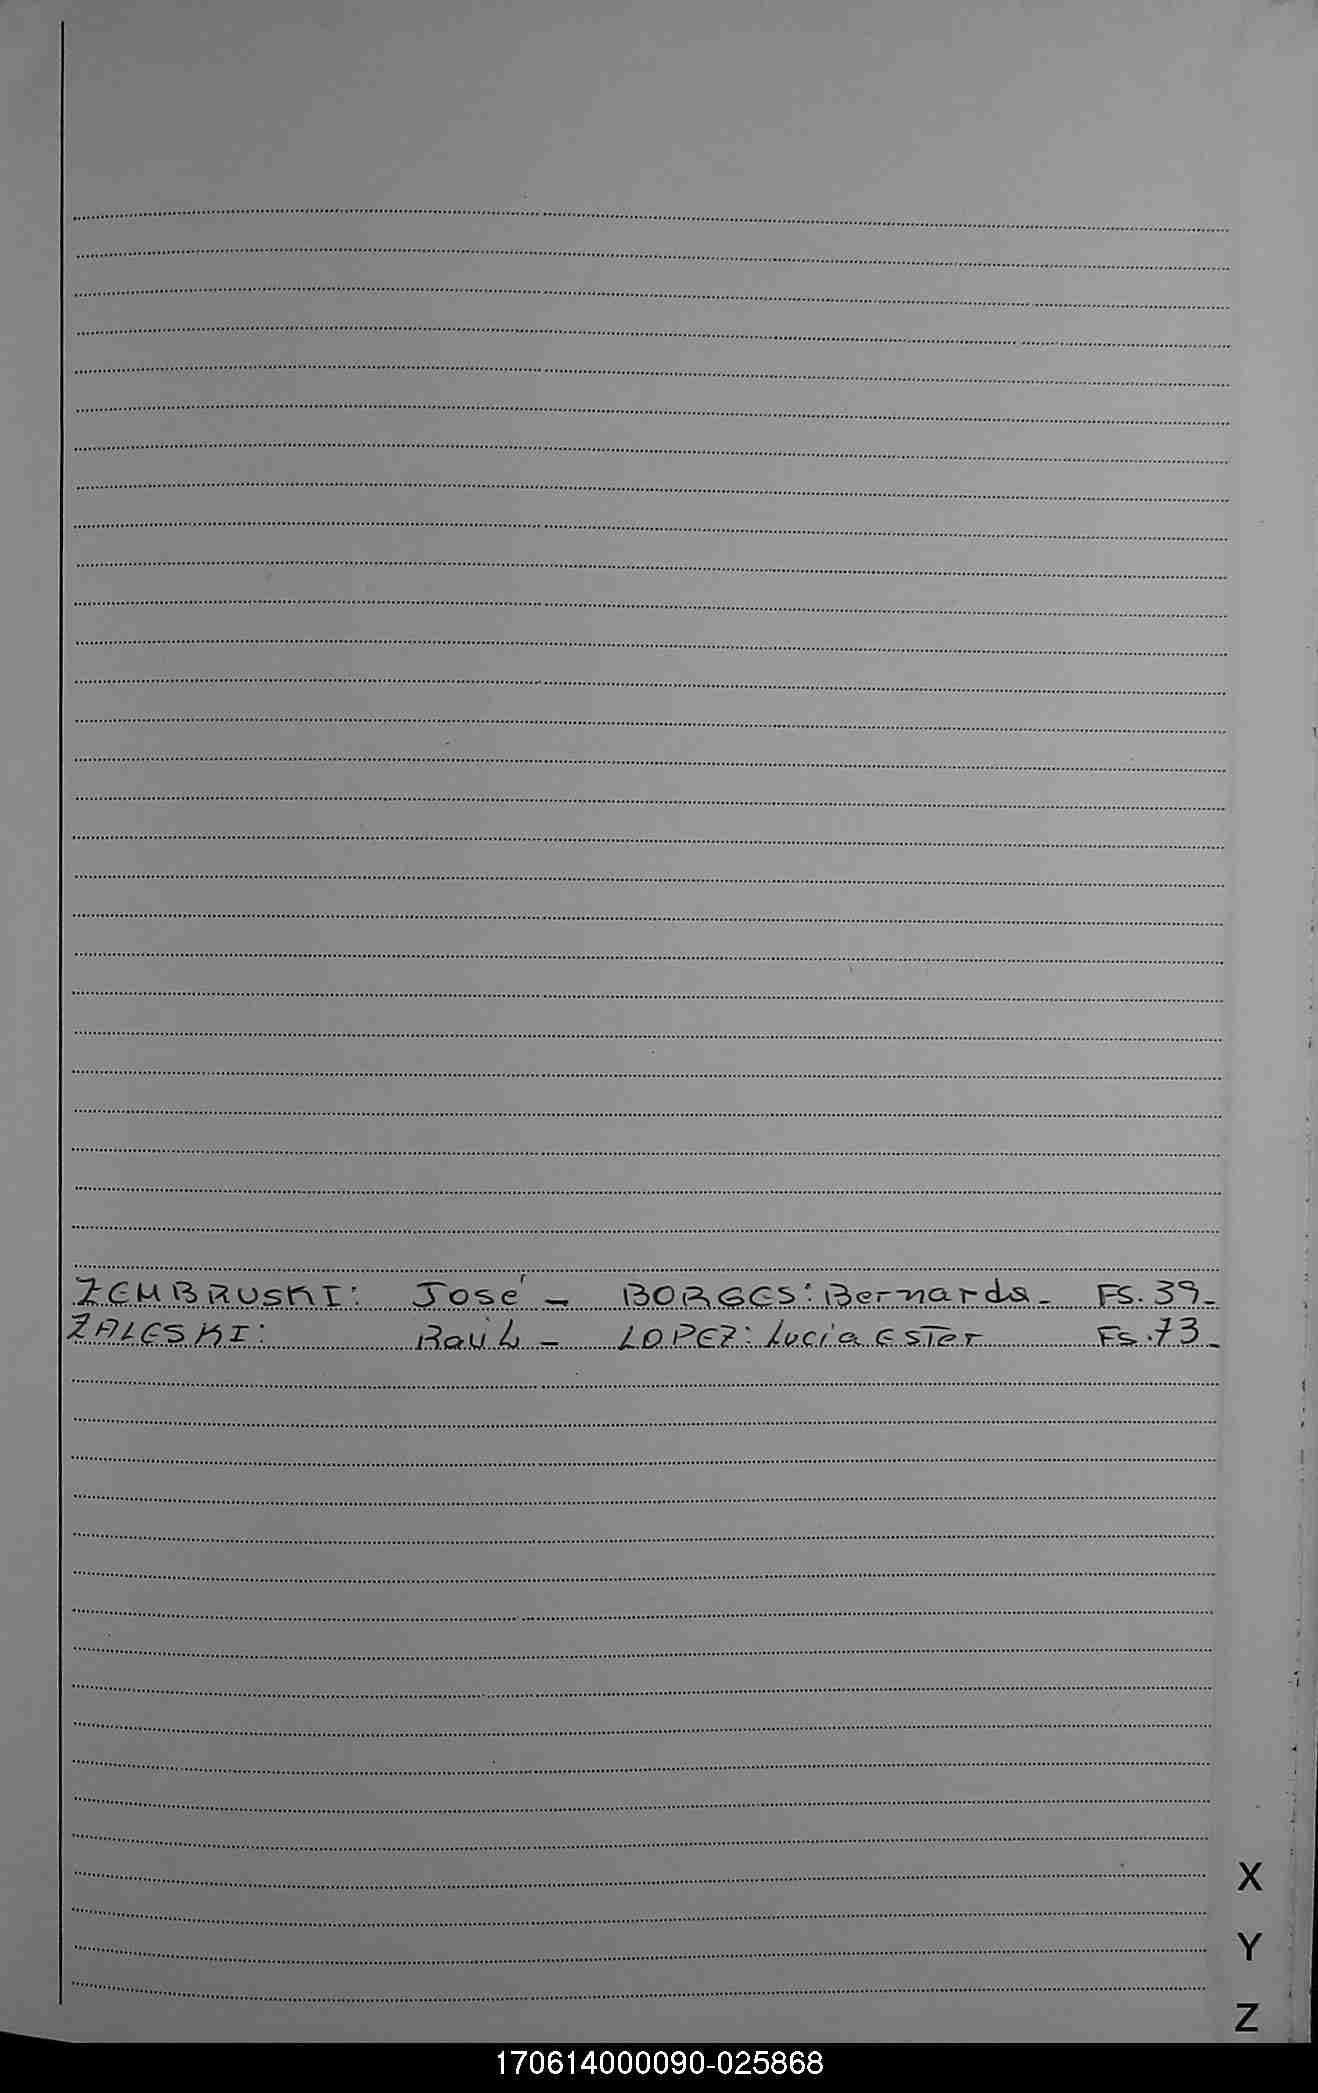 ZEMBRUSKI: José - BORGES: Bernarda - FS. 39 -
ZALESKI: Raúl - LOPEZ: Lucia Ester FS. 73 -
X
Y
Z
170614000090-025868